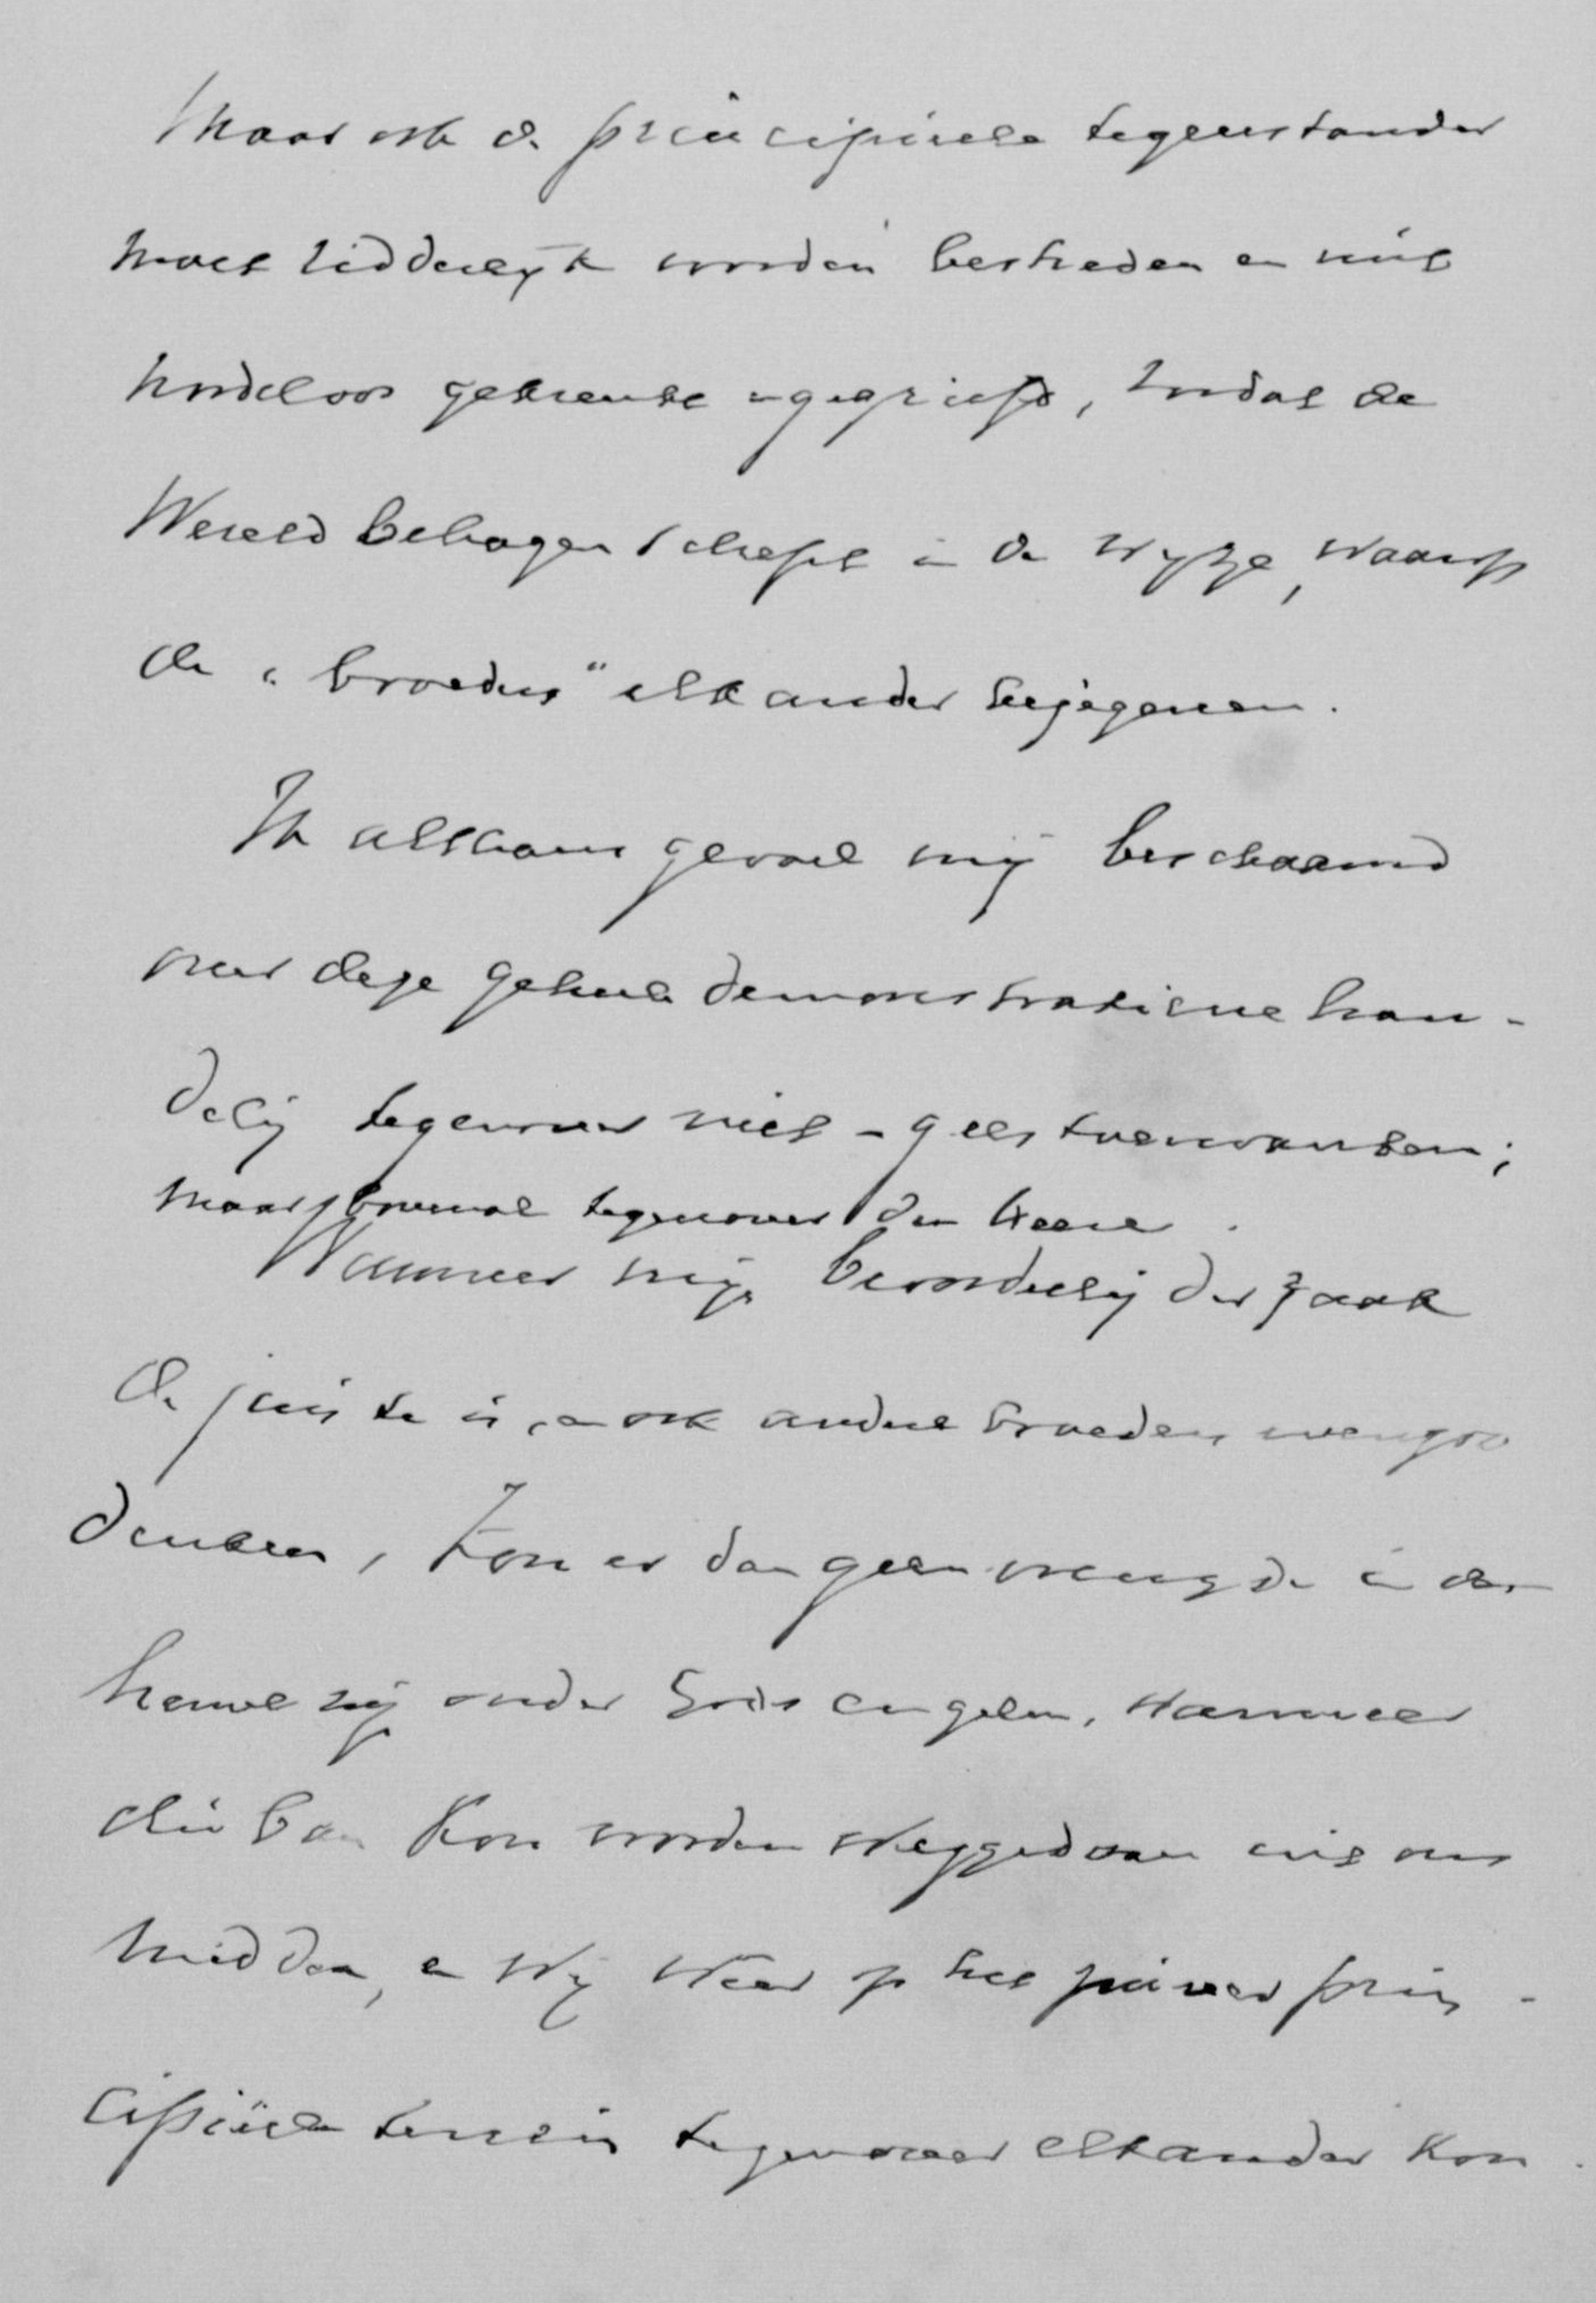 Maar ook de principieele tegenstander
moet ridderlijk worden bestreden en niet
noodeloos gekrenkt en gegriefd, zoodat de
Wereld behagen schept in de wijze, waarop
de "broeders" elkander bejegenen.
Ik althans gevoel mij beschaamd
over deze geheele demonstratieve han-
deling tegenover niet-geestverwanten;
maar bovenal tegenover den Heere.
Wanneer mijn beoordeeling der zaak
de juiste is, en ook andere broeders evenzoo
denken, Zou er dan geen vreugde in den
hemel zijn onder Gods engelen, wanneer
die ban kon worden weggedaan uit ons
midden, en wij weer op het zuiver prin-
cipiëele terrein tegenover elkander kon-